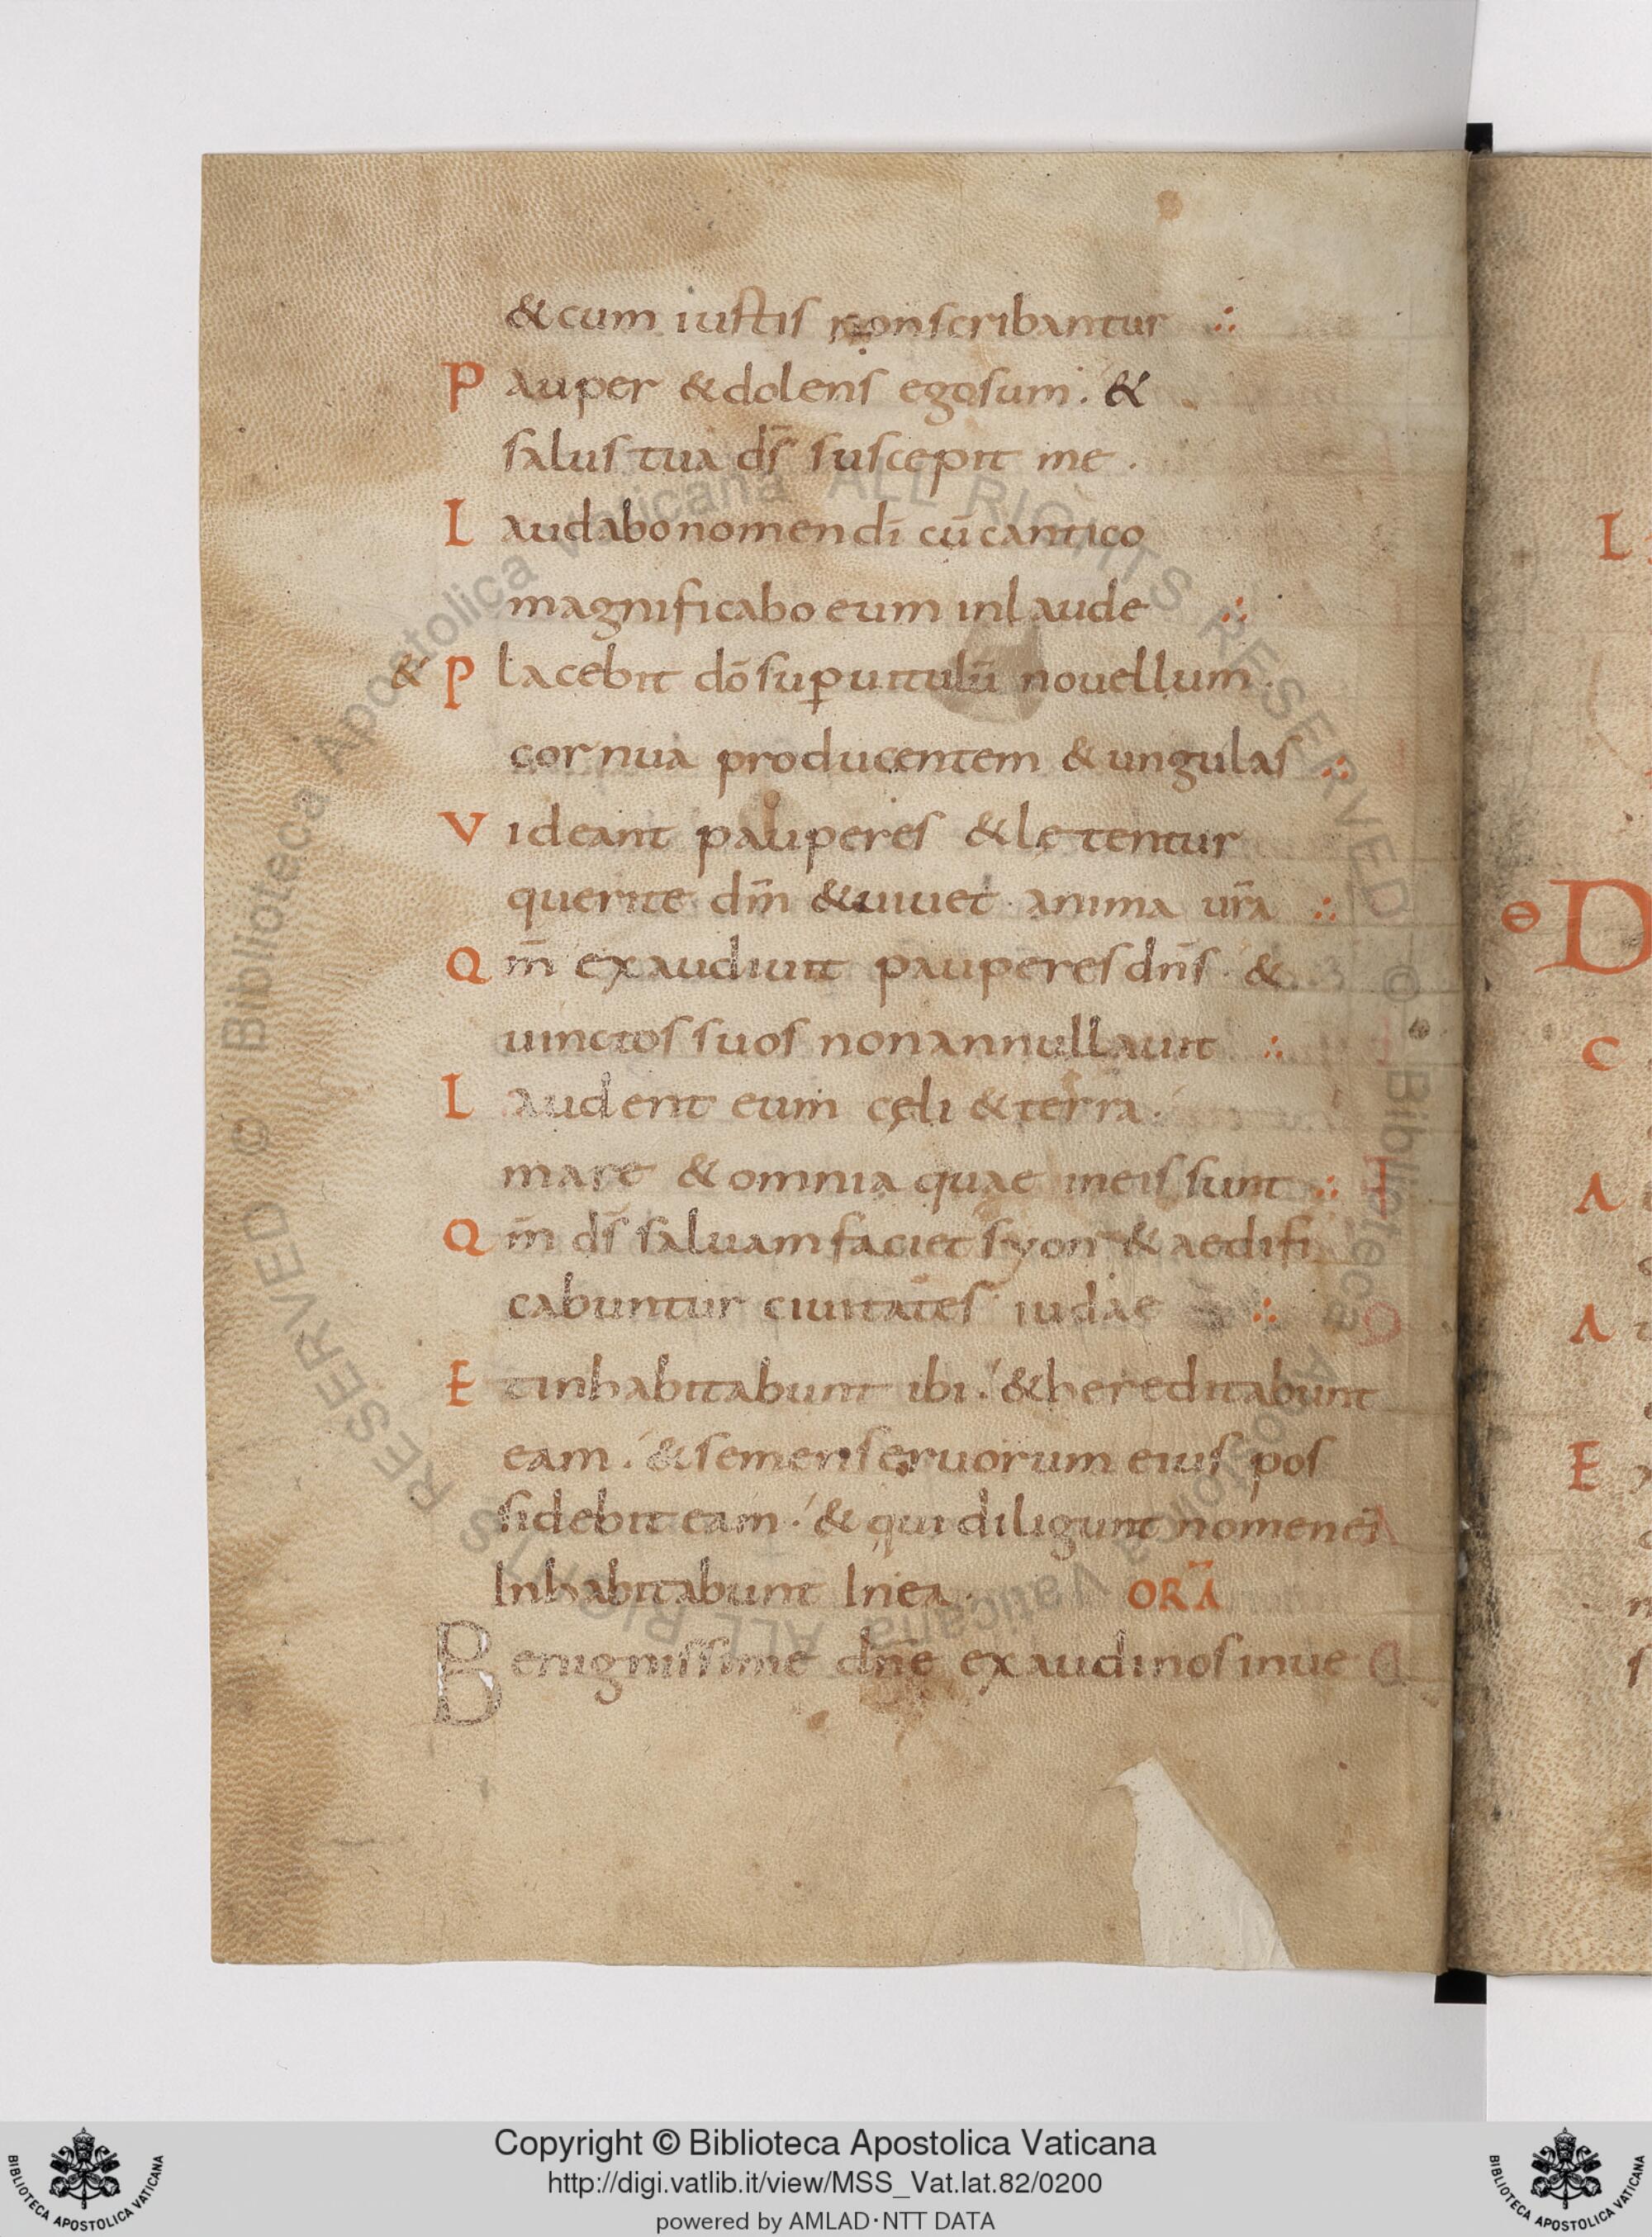 & cum iustis non scribantur ∴
Pauper & dolens ego sum . &
salus tua ds̄ suscepit me .
Laudabo nomen dī cū cantico
magnificabo eum in laude ∴
& Placebit dō suꝑ uitulū nouellum .
cornua producentem & ungulas ∴
Videant pauperes & lętentur
querite dm̄ & uiuet anima ur̄a ∴
Qm̄ exaudiuit pauperes dn̄s . &
uinctos suos non annullauit ∴
Laudent eum cęli & terra .
mare & omnia quae in eis sunt ∴
Qm̄ ds̄ saluam faciet syon & aedifi
cabuntur ciuitates iudae ∴
Et inhabitabunt ibi . & hereditabunt
eam . & semen seruorum eius pos
sidebit eam . & qui diligunt nomen ei
Inhabitabunt In ea . ORĀ
Benignissime dn̄e exaudi nos in ue
L
D
C
A
A
E
© Biblioteca Apostolica Vaticana ALL RIGHTS RESERVED
© Biblioteca Apostolica Vaticana ALL RIGHTS RESERVED
Copyright © Biblioteca Apostolica Vaticana
http://digi.vatlib.it/view/MSS_Vat.lat.82/0200
powered by AMLAD·NTT DATA
BIBLIOTECA APOSTOLICA VATICANA
BIBLIOTECA APOSTOLICA VATICANA